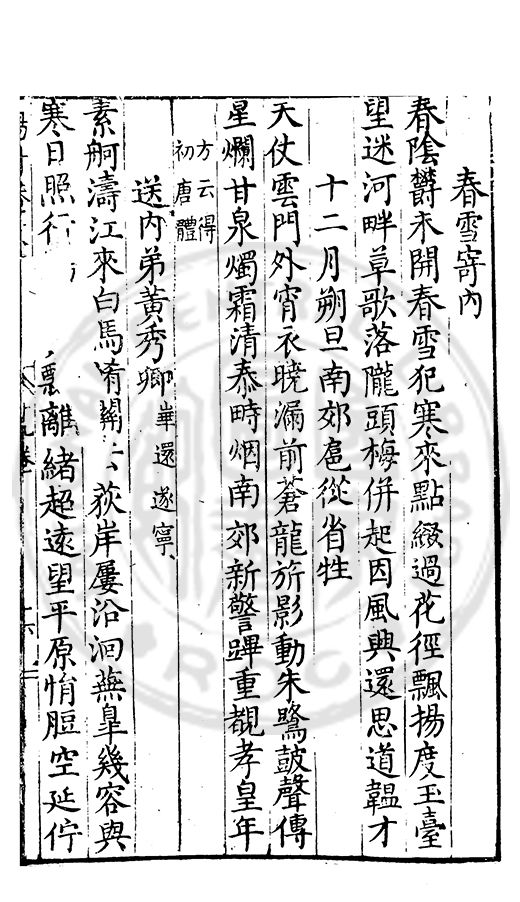 春雪寄內
春陰欝未開春雪犯寒來點綴過花徑飄揚度玉臺
望迷河畔草歌落隴頭梅併起因風興還思道韞才
十二月朔旦南郊扈從省牲
天仗雲門外宵衣曉漏前蒼龍旂影動朱鷺鼓聲傳
星爛甘泉燭霜清泰畤烟南郊新警蹕重覩孝皇年
方云得
初唐體
送內弟黃秀卿
華還遂寧
素舸濤江來白馬 荻岸屢沿洄蕪臯幾容與
寒日照行 離緒超遠望平原悁脰空延佇